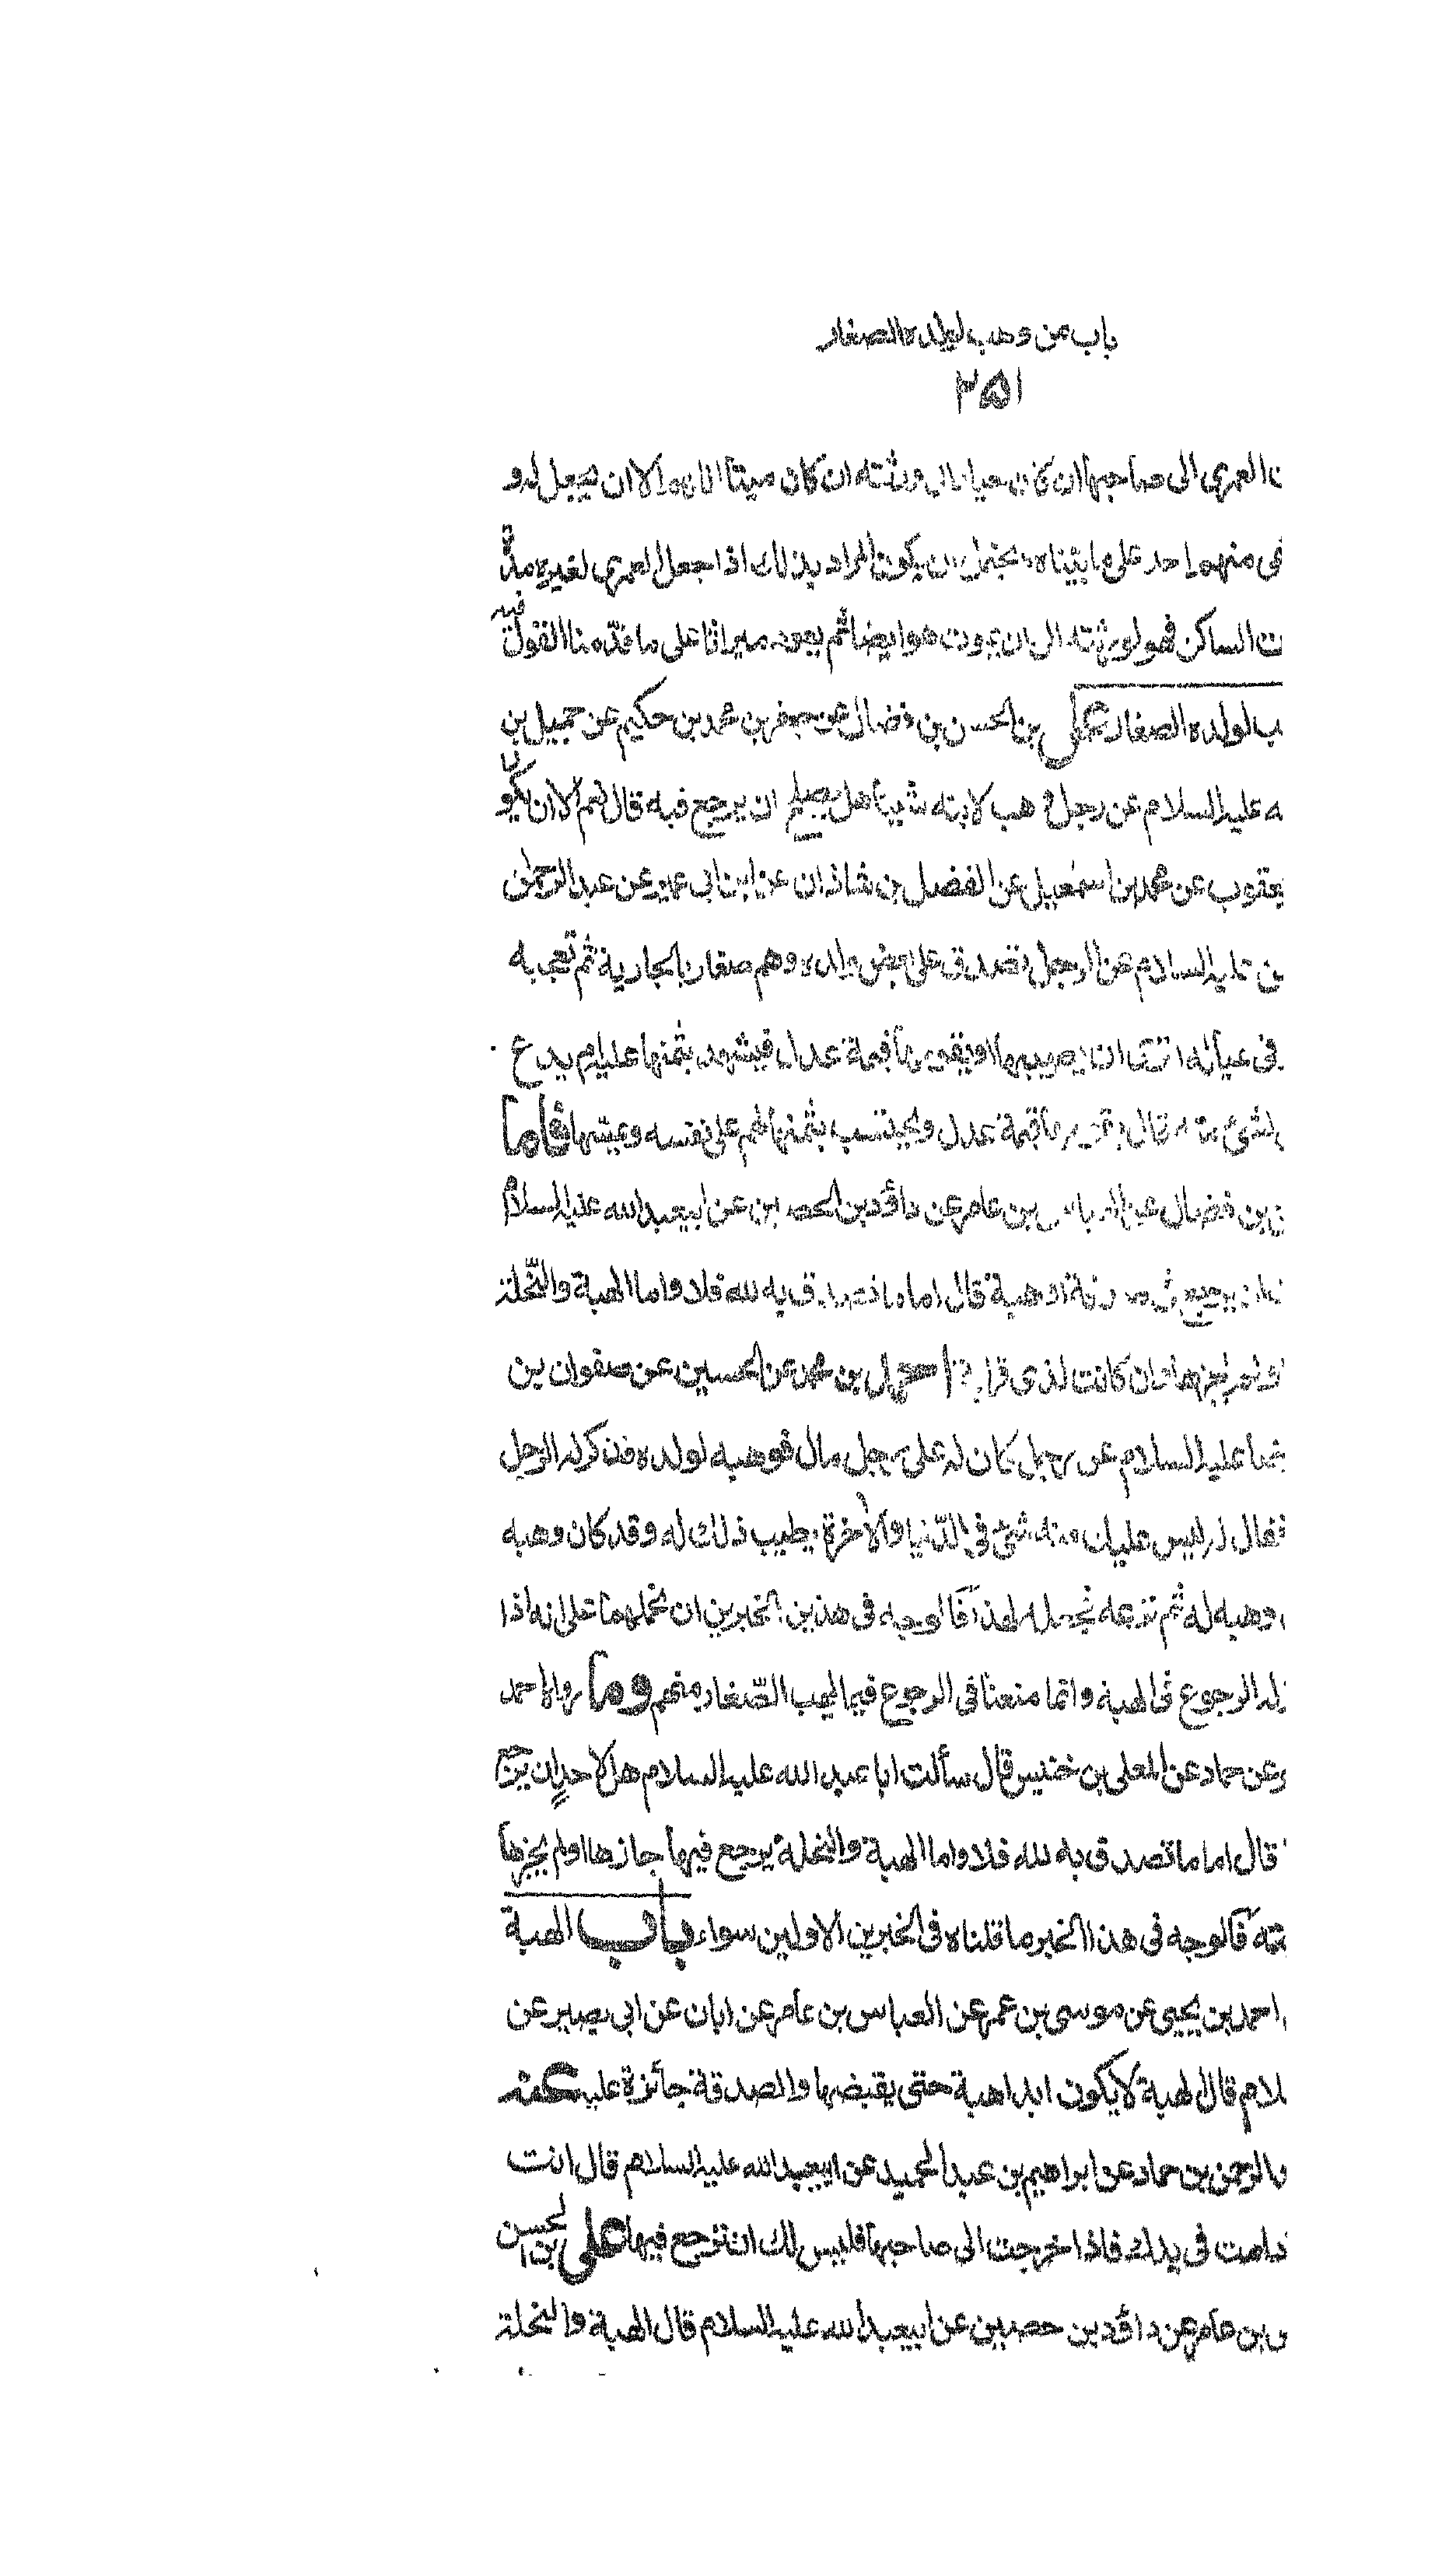 باب من وهب لولده الصغار
٢۵١
العمرى الى صاحبها ان كان حيا او الى ورثته ان كان ميتا الا ان يجعل له و
منهما احد على ما بيناه ويحتمل ان يكون المراد بذلك اذا جعل العمرى لغيره مدة
الساكن فهو لورثته الى ان يموت هو ايضا ثم يعود ميراثا على ما قدمنا القول فيه
لولده الصغار على بن الحسن بن فضال عن جعفر بن محمد بن حكيم عن جميل بن
عليه السلام عن رجل وهب لابنه شيئا هل يصلح ان يرجع فيه قال نعم الا ان يكون
يعقوب عن محمد بن اسمعيل عن الفضل بن شاذان عن ابن ابى عمير عن عبد الرحمن
عليه السلام عن الرجل تصدق على بعض ولده وهم صغار بالجارية ثم تعجبه
فى عياله ان يصيبها او يقومها قيمة عدل فيشهد بثمنها عليه ام يدع
قال يقومها قيمة عدل ويحتسب بثمنها لهم على نفسه ويمسها فاما
بن فضال عن العباس بن عامر عن داؤد بن الحصين عن ابيعبدالله عليه السلام
ان يرجع فى صدقة او هبة قال اما ما تصدق به لله فلا واما الهبة والنحلة
وان كانت لذى قرابة احمد بن محمد عن الحسين عن صفوان بن
عليه السلام عن رجل كان له على رجل مال فوهبه لولده فذكر له الرجل
فقال له ليس عليك منه شئ فى الدنيا والاخرة يطيب ذلك له وقد كان وهبه
وهبه له ثم نزعه فجعله لهذا فالوجه فى هذين الخبرين ان نحملهما على انه اذا
له الرجوع فى الهبة وانما منعنا فى الرجوع فيما يهب الصغار منهم وما رواه احمد
عن حماد عن المعلى بن خنيس قال سألت ابا عبد الله عليه السلام هل لاحد ان يرجع
قال اما ما تصدق به لله فلا واما الهبة والنحلة يرجع فيها حازها او لم يحزها
فالوجه فى هذا الخبر ما قلناه فى الخبرين الاولين سواء باب الهبة
احمد بن يحيى عن موسى بن عمر عن العباس بن عامر عن ابان عن ابى بصير عن
قال الهبة لا يكون ابدا هبة حتى يقبضها والصدقة جائزة عليه عنه
الرحمن بن حماد عن ابراهيم بن عبد الحميد عن ابيعبدالله عليه السلام قال انت
دامت فى يدك فاذا خرجت الى صاحبها فليس لك ان ترجع فيها على بن الحسن
بن عامر عن داؤد بن حصين عن ابيعبدالله عليه السلام قال الهبة والنحلة